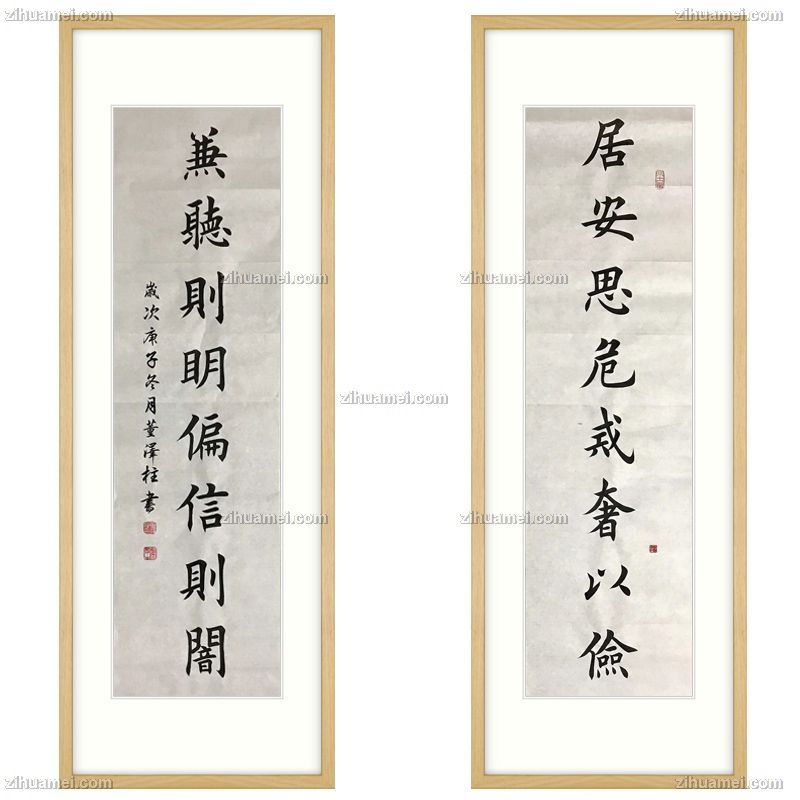 居安思危戒奢以儉
兼聽則明偏信則闇
歲次庚子冬月董澤柱書
zihuamei.com
zihuamei.com
zihuamei.com
zihuamei.com
zihuamei.com
zihuamei.com
zihuamei.com
zihuamei.com
zihuamei.com
zihuamei.com
zihuamei.com
zihuamei.com
zihuamei.com